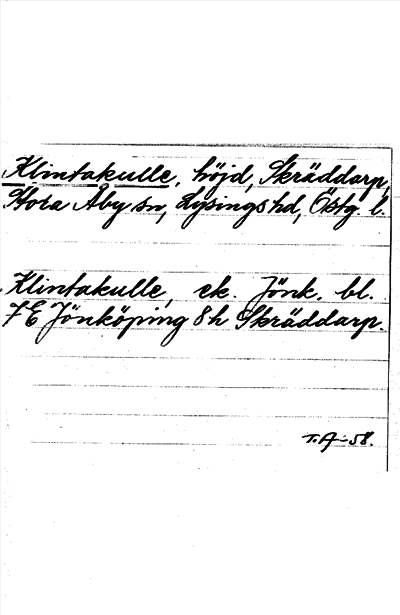 Klintakulle, höjd, Skräddarp,
Stora Åby sn, Lysings hd, Östg. l.
Klintakulle, ek. Jönk. bl.
7 E Jönköping 8h Skräddarp.
T. A-58.